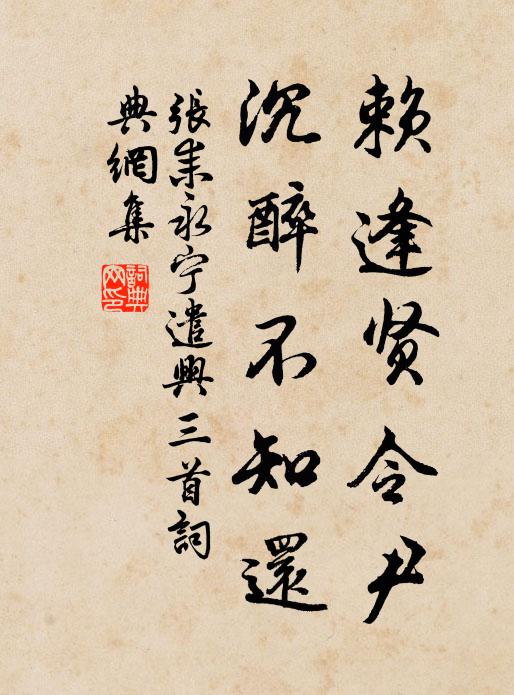 赖逢贤令尹
沉醉不知還
張耒永宁遣興三首詞
典網集
詞典
网印